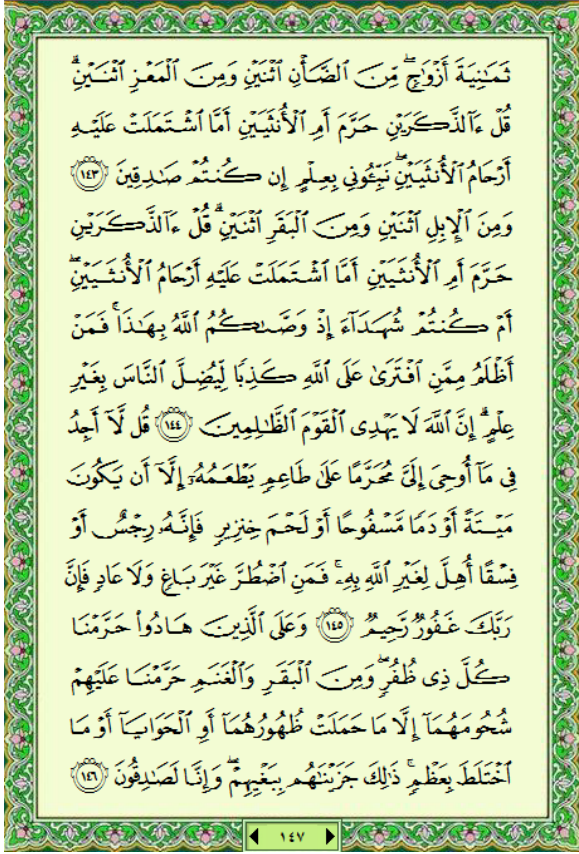 ثَمَٰنِيَةَ أَزْوَٰجٍۖ مِّنَ ٱلضَّأْنِ ٱثْنَيْنِ وَمِنَ ٱلْمَعْزِ ٱثْنَيْنِۗ
قُلْ ءَآلذَّكَرَيْنِ حَرَّمَ أَمِ ٱلْأُنثَيَيْنِ أَمَّا ٱشْتَمَلَتْ عَلَيْهِ
أَرْحَامُ ٱلْأُنثَيَيْنِۖ نَبِّـُٔونِي بِعِلْمٍ إِن كُنتُمْ صَٰدِقِينَ ١٤٣
وَمِنَ ٱلْإِبِلِ ٱثْنَيْنِ وَمِنَ ٱلْبَقَرِ ٱثْنَيْنِۗ قُلْ ءَآلذَّكَرَيْنِ
حَرَّمَ أَمِ ٱلْأُنثَيَيْنِ أَمَّا ٱشْتَمَلَتْ عَلَيْهِ أَرْحَامُ ٱلْأُنثَيَيْنِۖ
أَمْ كُنتُمْ شُهَدَآءَ إِذْ وَصَّىٰكُمُ ٱللَّهُ بِهَٰذَاۚ فَمَنْ
أَظْلَمُ مِمَّنِ ٱفْتَرَىٰ عَلَى ٱللَّهِ كَذِبًا لِّيُضِلَّ ٱلنَّاسَ بِغَيْرِ
عِلْمٍۗ إِنَّ ٱللَّهَ لَا يَهْدِى ٱلْقَوْمَ ٱلظَّٰلِمِينَ ١٤٤ قُل لَّآ أَجِدُ
فِي مَآ أُوحِىَ إِلَىَّ مُحَرَّمًا عَلَىٰ طَاعِمٍ يَطْعَمُهُۥٓ إِلَّآ أَن يَكُونَ
مَيْتَةً أَوْ دَمًا مَّسْفُوحًا أَوْ لَحْمَ خِنزِيرٍ فَإِنَّهُۥ رِجْسٌ أَوْ
فِسْقًا أُهِلَّ لِغَيْرِ ٱللَّهِ بِهِۦۚ فَمَنِ ٱضْطُرَّ غَيْرَ بَاغٍ وَلَا عَادٍ فَإِنَّ
رَبَّكَ غَفُورٌ رَّحِيمٌ ١٤٥ وَعَلَى ٱلَّذِينَ هَادُوا۟ حَرَّمْنَا
كُلَّ ذِى ظُفُرٍۖ وَمِنَ ٱلْبَقَرِ وَٱلْغَنَمِ حَرَّمْنَا عَلَيْهِمْ
شُحُومَهُمَآ إِلَّا مَا حَمَلَتْ ظُهُورُهُمَآ أَوِ ٱلْحَوَايَآ أَوْ مَا
ٱخْتَلَطَ بِعَظْمٍۚ ذَٰلِكَ جَزَيْنَٰهُم بِبَغْيِهِمْۖ وَإِنَّا لَصَٰدِقُونَ ١٤٦
١٤٧